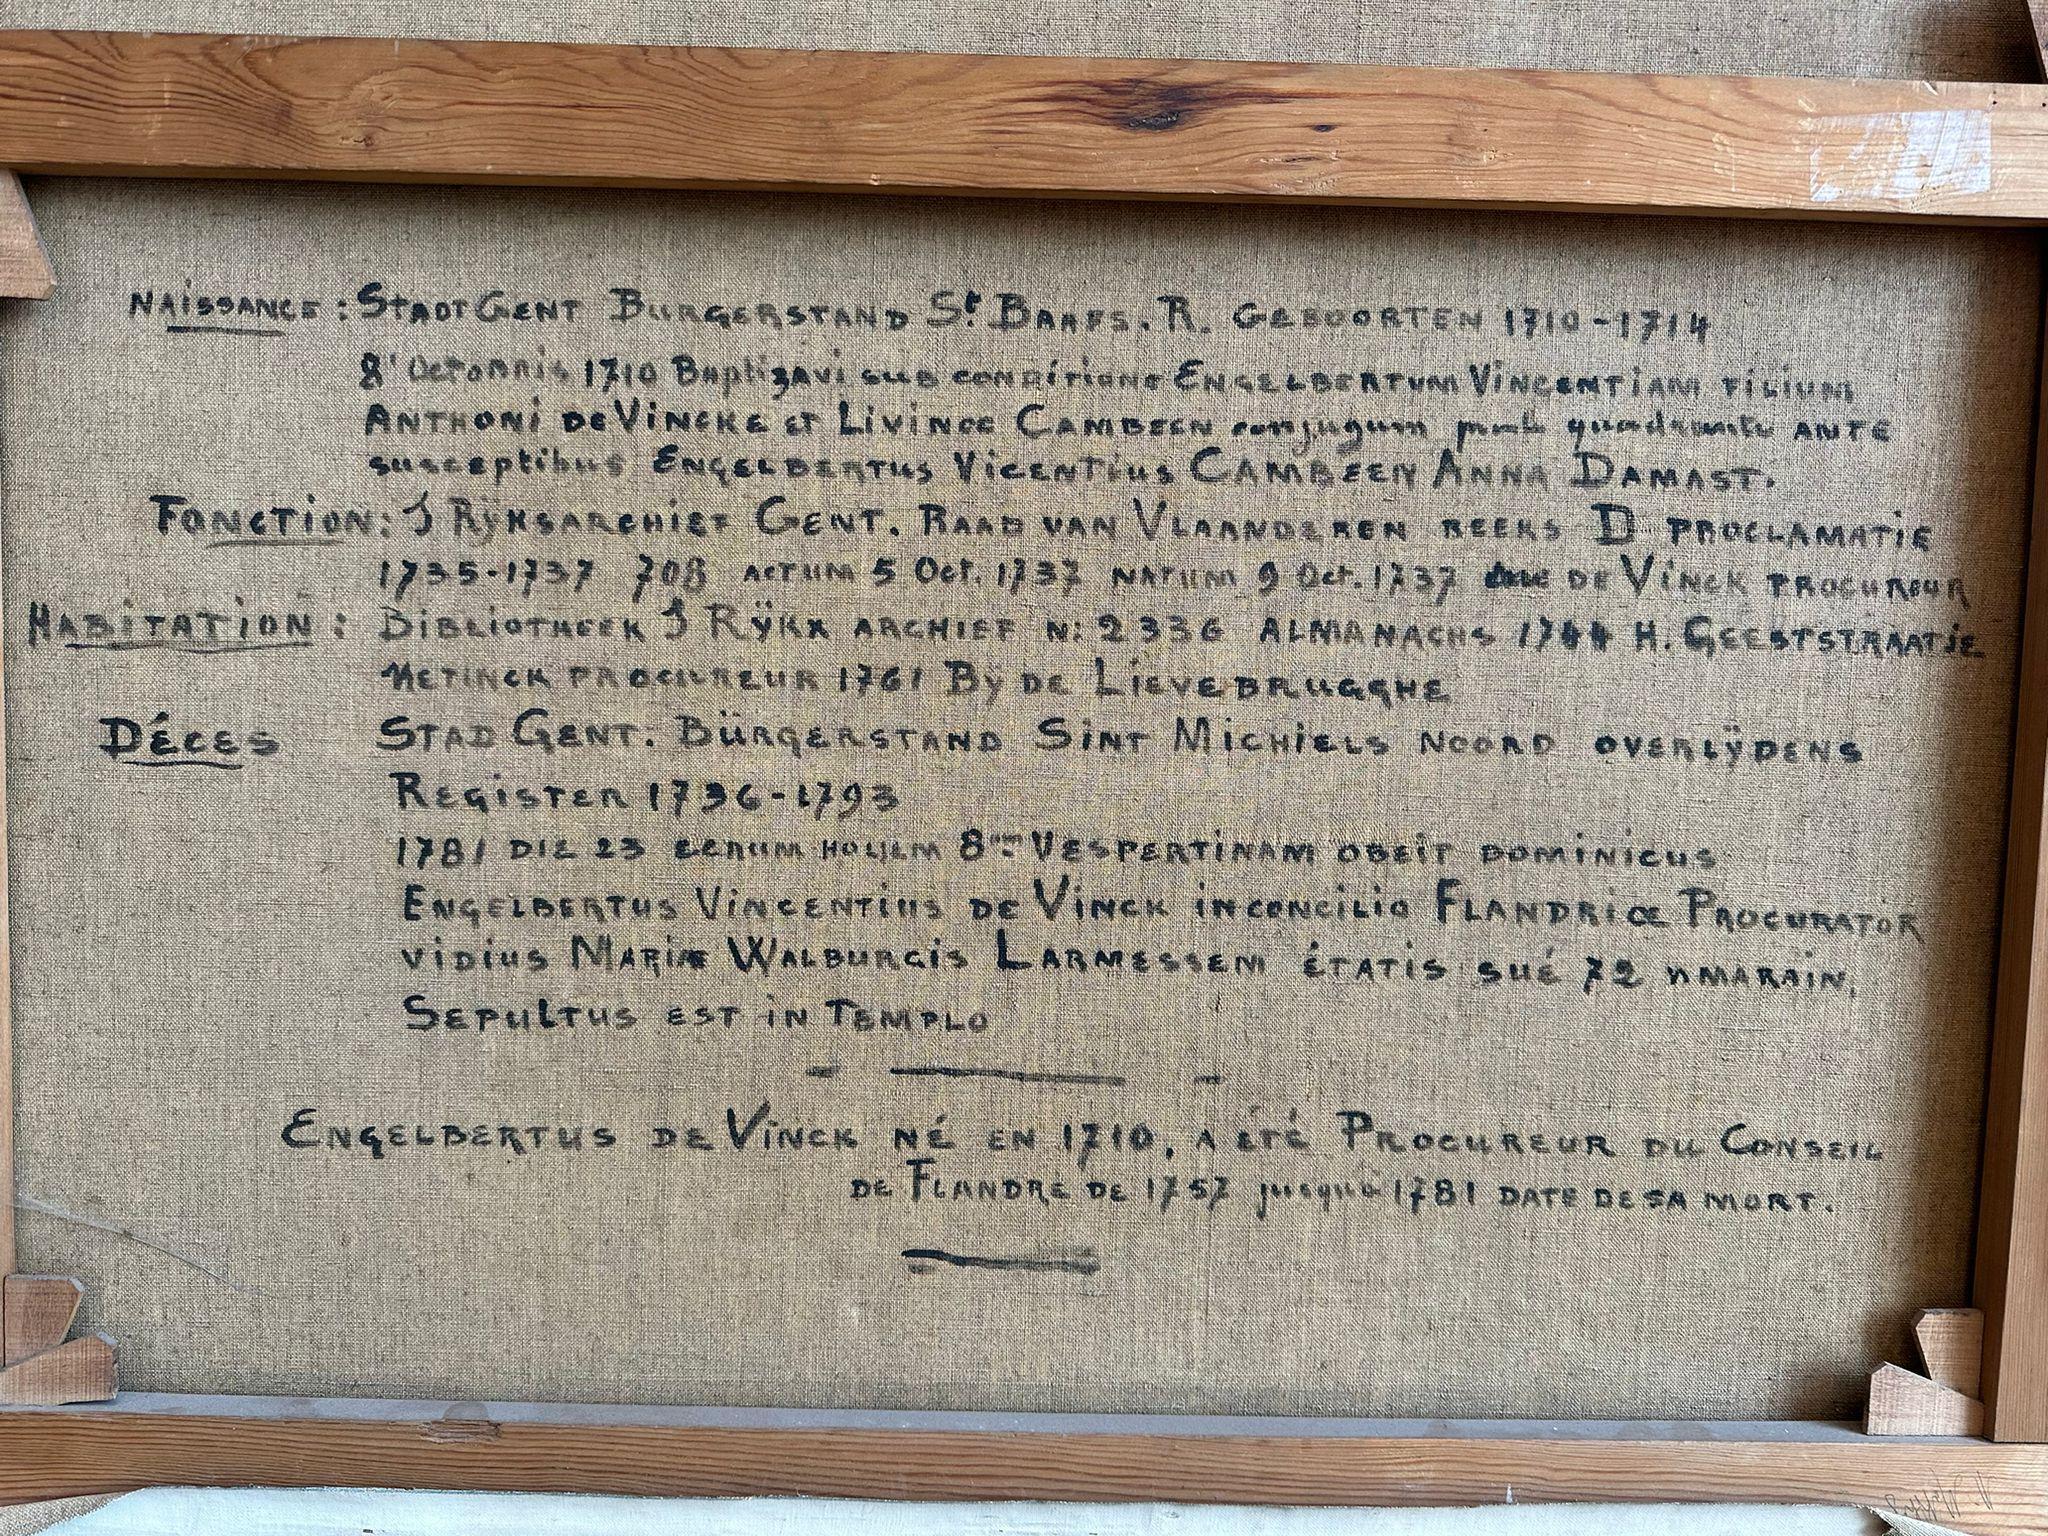 NAISSANCE : STADT GENT BURGERSTAND St BAAFS. R. GEBOORTEN 1710-1714
1710 Baptizavi sub conditione ENGELBERTUM VINCENTIAM FILIUM
ANTHONI DE VINCKE ET LIVINCE CAMBEEN conjugum ANTE
susceptibus ENGELBERTUS VICENTIUS CAMBEEN ANNA DAMAST.
FONCTION : RŸKSARCHIEF GENT. RAAD VAN VLAANDEREN REEKS D PROCLAMATIE
1735-1737 708 ACTUM 5 Oct. 1737 NATUM 9 Oct. 1737 DE VINCK PROCUREUR
HABITATION : BIBLIOTHEEK RŸKX ARCHIEF N: 2336 ALMANACHS 1744 H. GEESTSTRAATJE
METINCK PROCUREUR 1761 BY DE LIEVEBRUGGHE
DÉCES STAD GENT. BÜRGERSTAND SINT MICHIELS NOORD OVERLŸDENS
REGISTER 1736-1793
1781 DIE 23 8 VESPERTINAM OBEIT DOMINICUS
ENGELBERTUS VINCENTIUS DE VINCK IN CONCILIO FLANDRIŒ PROCURATOR
VIDIUS MARIÆ WALBURGIS LARMESSEM ÉTATIS SUÉ 72
SEPULTUS EST IN TEMPLO
ENGELBERTUS DE VINCK NÉ EN 1710, A ÉTÉ PROCUREUR DU CONSEIL
DE FLANDRE DE 1757 jusqua 1781 DATE DE SA MORT.